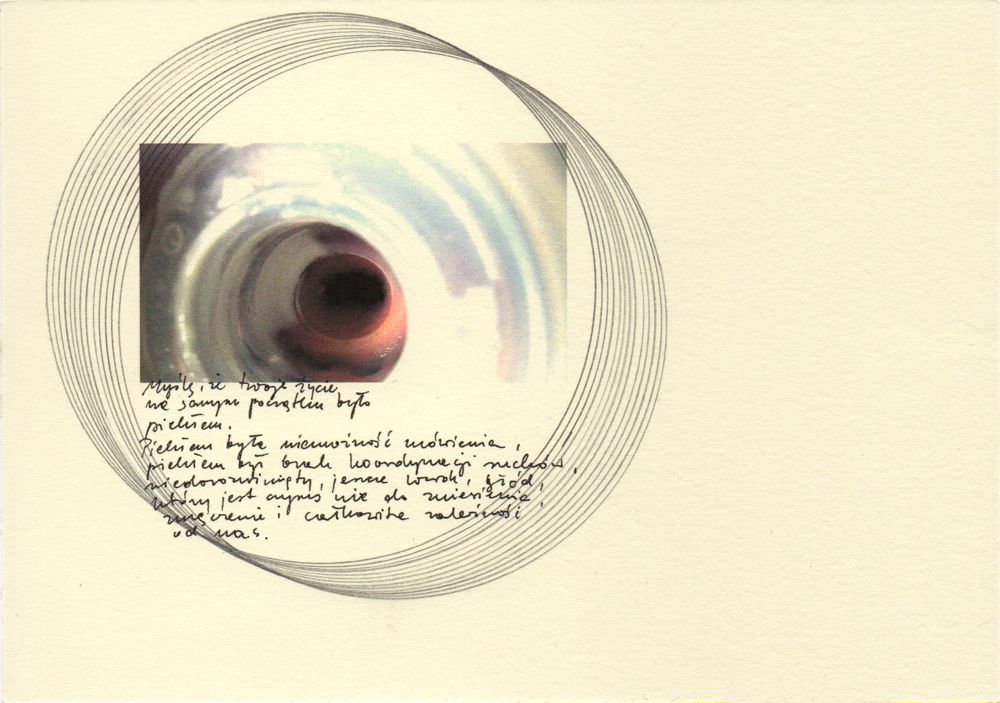 Myślę, że twoje życie
na samym początku było
piekłem.
Piekłem była niemożność mówienia,
piekłem był brak koordynacji ruchów,
niedorozwinięty, jeszcze wzrok, głód,
który jest czymś nie do zniesienia,
zmęczenie i całkowita zależność
od nas.